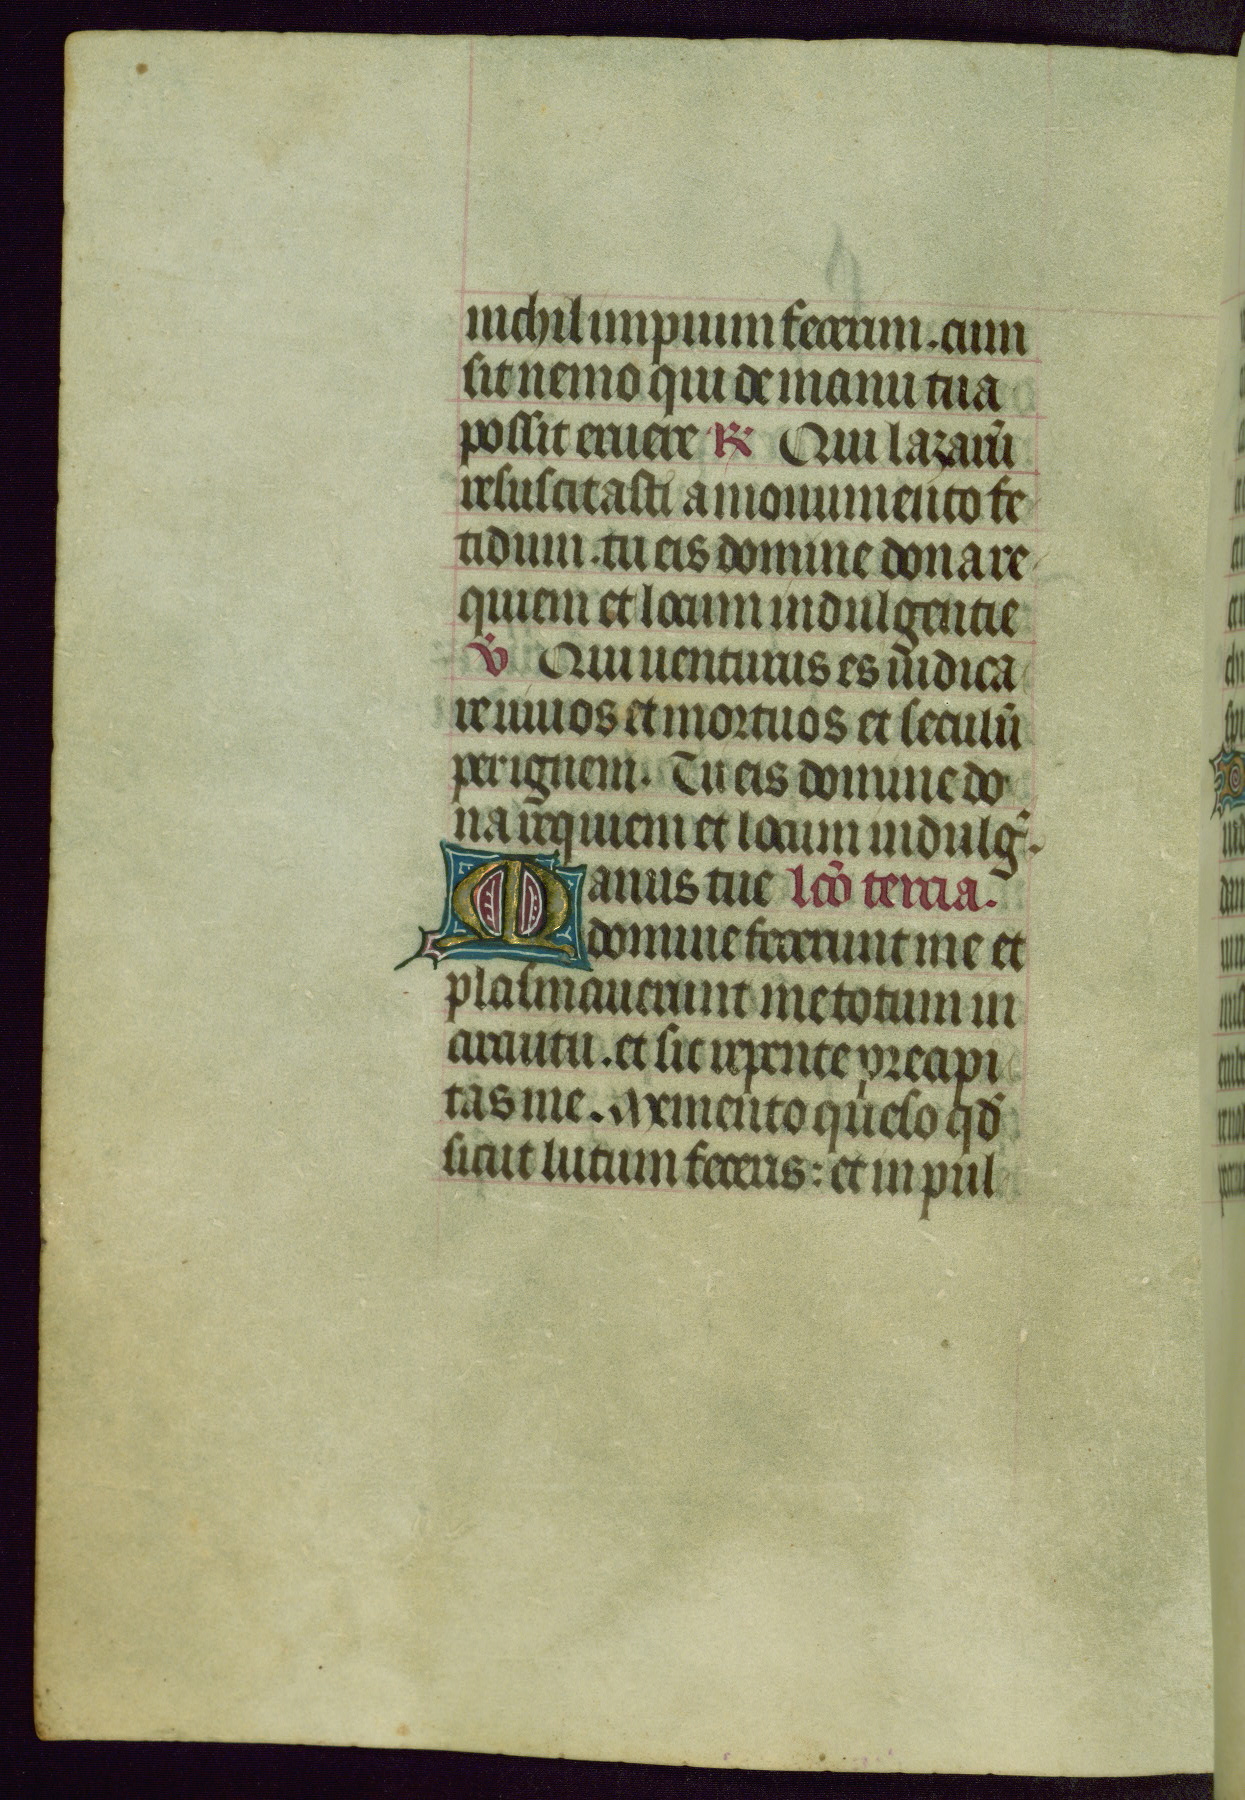 nichil impium fecerim. cum
sit nemo qui de manu tua
possit eruere ℟ Qui lazarū
resuscitasti a monumento fe
tidum. tu eis domine dona re
quiem et locum indulgentie
℣ Qui uenturus es iudica
re uiuos et mortuos et seculū
per ignem. Tu eis domine do
na requiem et locum indulg̃.
Manus tue lcō tercia.
domine fecerunt me et
plasmauerunt me totum in
circuitu. et sic repente precipi
tas me. Memento queso qd̄
sicut lutum feceris: et in pul